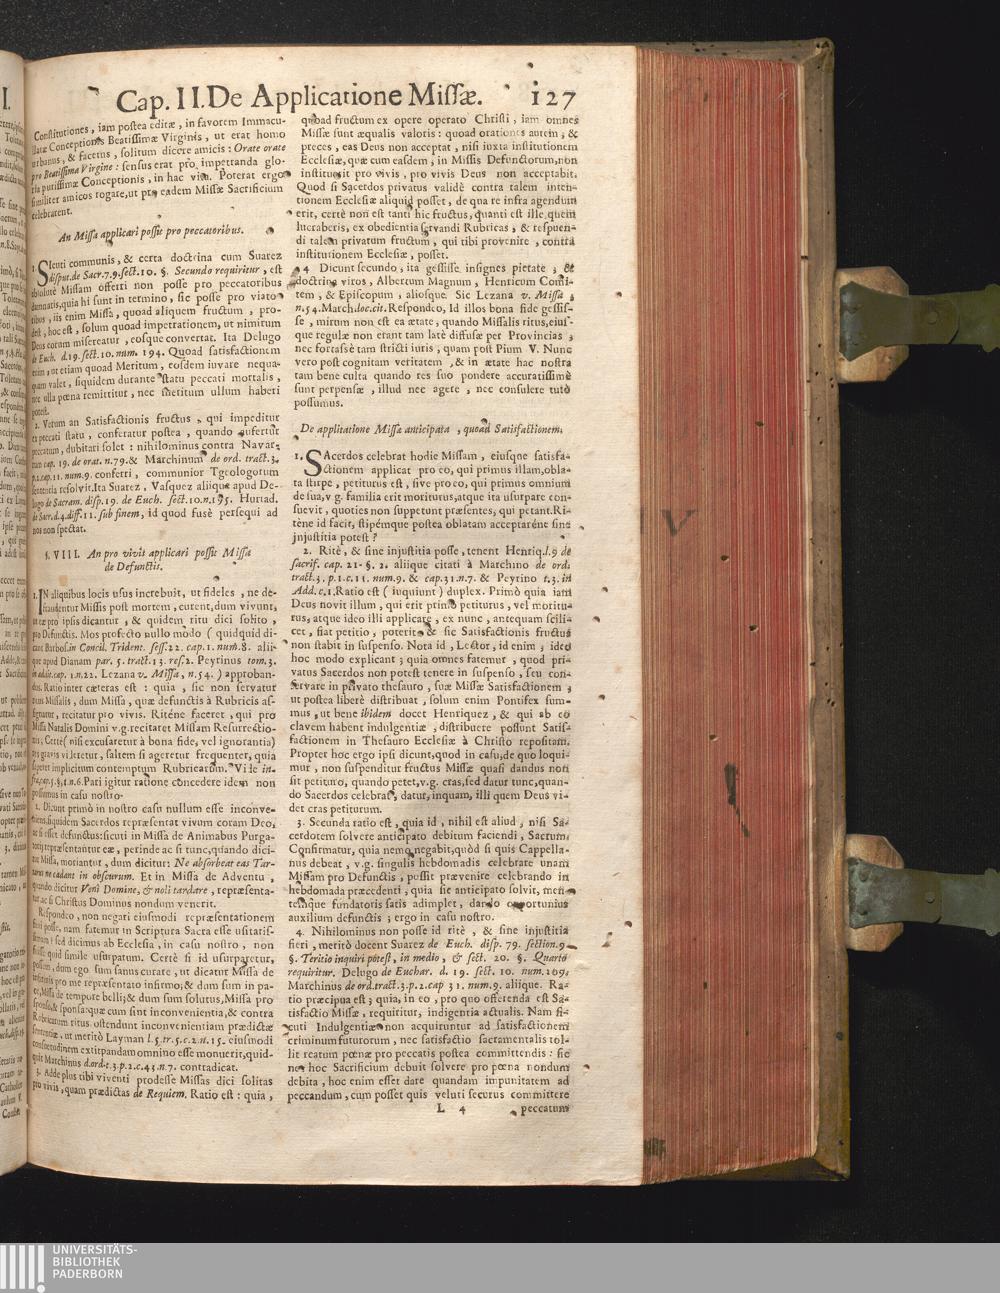 Cap. II. De Applicatione Missæ. 127
Constitutiones, iam postea editæ, in favorem Immacu-
latæ Conceptionis Beatissimæ Virginis, ut erat homo
urbanus, & facetus, solitum dicere amicis: Orate orate
pro Beatissima Virgine: sensus erat pro impetranda glo-
ria purissimæ Conceptionis, in hac vita. Poterat ergo
similiter amicos rogare, ut pro eadem Missæ Sacrificium
celebrarent.
An Missa applicari possit pro peccatoribus.
1. Sicuti communis, & certa doctrina cum Suarez
disput. de Sacr. 7.9. sect. 10. §. Secundo requiritur, est
absolutè Missam offerri non posse pro peccatoribus
damnatis, quia hi sunt in termino, sic posse pro viato-
ribus, iis enim Missa, quoad aliquem fructum, pro-
dest, hoc est, solum quoad impetrationem, ut nimitum
Deus eorum misereatur, eosque convertat. Ita Delugo
de Euch. d. 19. sect. 10. num. 194. Quoad satisfactionem
enim, ut etiam quoad Meritum, eosdem iuvare nequa-
quam valet, siquidem durante statu peccati mortalis,
nec ulla pœna remittitur, nec meritum ullum haberi
potest.
2. Verum an Satisfactionis fructus, qui impeditur
ex peccati statu, conferatur postea, quando aufertur
peccatum, dubitari solet: nihilominus contra Navar-
rum cap. 19. de orat. n. 79. & Marchinum de ord. tract. 3.
p. 2. cap. 11. num. 9. conferri, communior Tgeologorum
sententia resolvit. Ita Suarez, Vasquez aliique apud De-
lugo de Sacram. disp. 19. de Euch. sect. 10. n. 195. Hurtad.
de Sacr. d. 4. diff. 11. sub finem, id quod fusè persequi ad
nos non spectat.
§. VIII. An pro vivis applicari possit Missa
de Defunctis.
1. IN aliquibus locis usus increbuit, ut fideles, ne de-
fraudentur Missis post mortem, curent, dum vivunt,
ut eæ pro ipsis dicantur, & quidem ritu dici solito,
pro Defunctis. Mos profecto nullo modo (quidquid di-
cant Barbos. in Concil. Trident. sess. 22. cap. 1. num. 8. alii-
que apud Dianam par. 5. tract. 13. res. 2. Peyrinus tom. 3.
in addit. cap. 1. n. 22. Lezana v. Missa, n. 54.) approban-
dus. Ratio inter cæteras est: quia, sic non servatur
ritus Missalis, dum Missa, quæ defunctis à Rubricis as-
signatur, recitatur pro vivis. Ritène faceret, qui pro
Missa Natalis Domini v.g. recitaret Missam Resurrectio-
nis; Certè (nisi excusaretur à bona fide, vel ignorantia)
res gravis videretur, saltem si ageretur frequenter, quia
saperet implicitum contemptum Rubricarum. Vide in-
fra, cap. 5. §. 1. n. 6. Pari igitur ratione concedere idem non
possumus in casu nostro.
2. Dicunt primò in nostro casu nullum esse inconve-
niens, siquidem Sacerdos repræsentat vivum coram Deo,
ac si esset defunctus: sicuti in Missa de Animabus Purga-
torii repræsentantur eæ, perinde ac si tunc, quando dici-
tur Missa, moriantur, dum dicitur: Ne absorbeat eas Tar-
tarus ne cadant in obscurum. Et in Missa de Adventu,
quando dicitur Veni Domine, & noli tardare, repræsenta-
tur ac si Christus Dominus nondum venerit.
Respondeo, non negari eiusmodi repræsentationem
fieri posse, nam fatemur in Scriptura Sacra esse usitatis-
simam: sed dicimus ab Ecclesia, in casu nostro, non
fuisse quid simile usurpatum. Certè si id usurparetur,
possem, dum ego sum sanus curare, ut dicatur Missa de
infirmis pro me repræsentato infirmo; & dum sum in pa-
ce, Missa de tempore belli; & dum sum solutus, Missa pro
sponso, & sponsa: quæ cum sint inconvenientia, & contra
Rubricarum ritus ostendunt inconvenientiam prædictæ
sententiæ, ut meritò Layman l. 5. tr. 5. c. 2. n. 15. eiusmodi
consuetudinem extirpandam omnino esse monuerit, quid-
quit Marchinus d. ord. t. 3. p. 1. c. 43. n. 7. contradicat.
3. Adde plus tibi viventi prodesse Missas dici solitas
pro vivis, quam prædictas de Requiem. Ratio est: quia,
quoad fructum ex opere operato Christi, iam omnes
Missæ sunt æqualis valoris: quoad orationes autem, &
preces, eas Deus non acceptat, nisi iuxta institutionem
Ecclesiæ, quæ cum easdem, in Missis Defunctorum, non
instituerit pro vivis, pro vivis Deus non acceptabit.
Quod si Sacerdos privatus validè contra talem inten-
tionem Ecclesiæ aliquid posset, de qua re infra agendum
erit, certè non est tanti hic fructus, quanti est ille, quem
lucraberis, ex obedientia servandi Rubricas, & respuen-
di talem privatum fructum, qui tibi provenire, contra
institutionem Ecclesiæ, posset.
4 Dicunt secundo, ita gessisse insignes pietate, &
doctrina viros, Albertum Magnum, Henricum Comi-
tem, & Episcopum, aliosque. Sic Lezana v. Missa,
n. 54. March. loc. cit. Respondeo, Id illos bona fide gessis-
se, mirum non est ea ætate, quando Missalis ritus, eius-
que regulæ non erant tam latè diffusæ per Provincias;
nec fortassè tam stricti iuris, quam post Pium V. Nunc
vero post cognitam veritatem, & in ætate hac nostra
tam bene culta quando res suo pondere accuratissimè
sunt perpensæ, illud nec agere, nec consulere tutò
possumus.
De applitatione Missæ anticipata, quoad Satisfactionem.
1. SAcerdos celebrat hodie Missam, eiusque satisfa-
ctionem applicat pro eo, qui primus illam, obla-
ta stirpe, petiturus est, sive pro eo, qui primus omnium
de sua, v.g. familia erit moriturus, atque ita usurpare con-
suevit, quoties non suppetunt præsentes, qui petant. Ri-
tène id facit, stipémque postea oblatam acceptaréne sine
jnjustitia potest?
2. Ritè, & sine injustitia posse, tenent Henriq. l. 9 de
sacrif. cap. 21. §. 2. aliique citati à Marchino de ord.
tract. 3. p. 1. c. 11. num. 9. & cap. 31. n. 7. & Peyrino t. 3. in
Add. c. 1. Ratio est (iuquiunt) duplex. Primò quia iam
Deus novit illum, qui erit primo petiturus, vel moritu-
rus, atque ideo illi applicare, ex nunc, antequam scili-
cet, fiat petitio, poterit & sic Satisfactionis fructus
non stabit in suspenso. Nota id, Lector, id enim, ideo
hoc modo explicant; quia omnes fatemur, quod pri-
vatus Sacerdos non potest tenere in suspenso, seu con-
servare in privato thesauro, suæ Missæ Satisfactionem,
ut postea liberè distribuat, solum enim Pontifex sum-
mus, ut bene ibidem docet Henriquez, & qui ab eo
clavem habent indulgentiæ, distribuere possunt Satis-
factionem in Thesauro Ecclesiæ à Christo repositam.
Propter hoc ergo ipsi dicunt, quod in casu, de quo loqui-
mur, non suspenditur fructus Missæ quasi dandus non
sit petituro, quando petet, v.g. cras, sed datur tunc, quan-
do Sacerdos celebrat, datur, inquam, illi quem Deus vi-
det cras petiturum.
3. Secunda ratio est, quia id, nihil est aliud, nisi Sa-
cerdotem solvere anticipato debitum faciendi, Sacrum.
Confirmatur, quia nemo negabit, quòd si quis Cappella-
nus debeat, v.g. singulis hebdomadis celebrare unam
Missam pro Defunctis, possit prævenire celebrando in
hebdomada præcedenti, quia sic anticipato solvit, men-
temque fundatoris satis adimplet, dando opportunius
auxilium defunctis; ergo in casu nostro.
4. Nihilominus non posse id ritè, & sine injustitia
fieri, meritò docent Suarez de Euch. disp. 79. section. 9.
§. Teritio inquiri potest, in medio, & sect. 20. §. Quarto
requiritur. Delugo de Euchar. d. 19. sect. 10. num. 209.
Marchinus de ord. tract. 3. p. 2. cap 31. num. 9. aliique. Ra-
tio præcipua est; quia, in eo, pro quo offerenda est Sa-
tisfactio Missæ, requiritur, indigentia actualis. Nam si-
cuti Indulgentiæ non acquiruntur ad satisfactionem
criminum futurorum, nec satisfactio sacramentalis tol-
lit reatum pœnæ pro peccatis postea committendis: sic
nec hoc Sacrificium debuit solvere pro pœna nondum
debita, hoc enim esset dare quandam impunitatem ad
peccandum, cum posset quis veluti securus committere
L 4 peccatum
V
UNIVERSITÄTS-
BIBLIOTHEK
PADERBORN